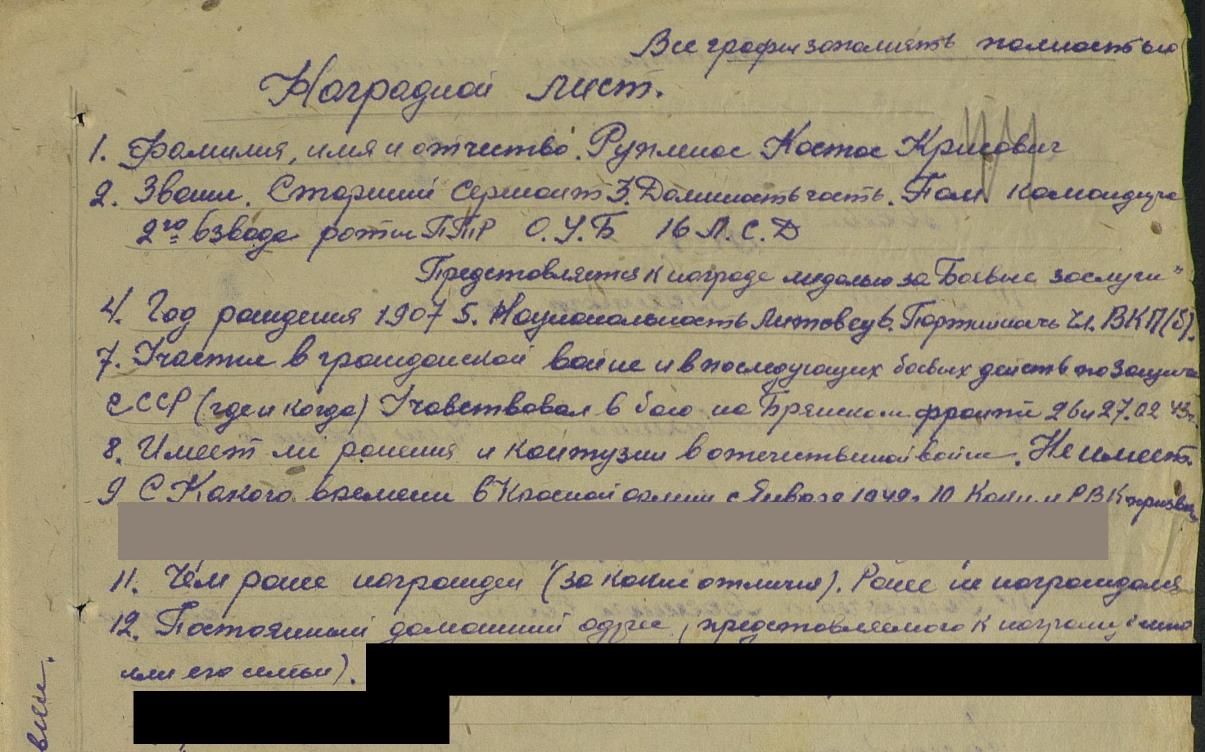 Все графы заполнять полностью
Наградной лист.
1. Фамилия, имя и отчество. Ружмиос Костос Крисович
2. Звани. Старший Сержант 3. Должность часть. Пом командира
2го взвода роты ПТР О.У.Б 16 Л.С.Д
Представляется к награде медалью за Боевые заслуги"
4. Год рождения 1907 5. Национальность Литовец 6. Партийность Чл. ВКП(б).
7. Участие в гражданской войне и в последующих боевых действ по защите
СССР (где и когда) Учавствовал в бою на Брянском фронте 26 и 27.02 43г.
8. Имеет ли ранения и контузии в отечественной войне. Не имеет.
9 С Какого времени в Красной армии с Января 1942г 10 Каким РВК призван
11. Чем ранее награжден (за какие отличия). Ранее не награждался
12. Постоянный домашний адрес, представляемого к
или его семьи).